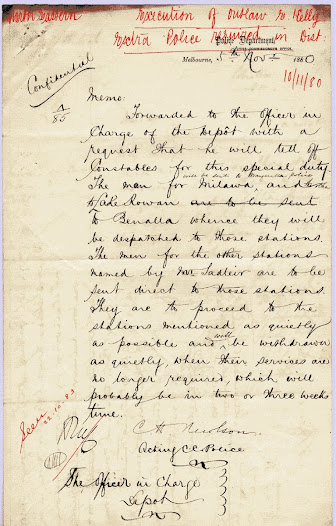 North Eastern
Execution of outlaw E. Kelly
Extra Police required in Dist.
Police Department,
Melbourne, 5th Novr 1880
10/11/80
Confidential
Memo:
Forwarded to the Officer in
Charge of the Depôt with a
request that he will tell off
Constables for this special duty.
will be sent to
The men for Milawa, and
to Lake Rowan are to be sent
To Benalla whence they will
be despatched to those stations.
The men for the other stations
named by Mr Sadleir are to be
sent direct to those stations.
They are to proceed to the
stations mentioned as quietly
as possible and will be withdrawn
as quietly, when their services are
no longer required, which will
probably be in two or three weeks
time.
Seen
22.10.83
C H Nicolson
Acting C C Police
The Officer in Charge
Depot